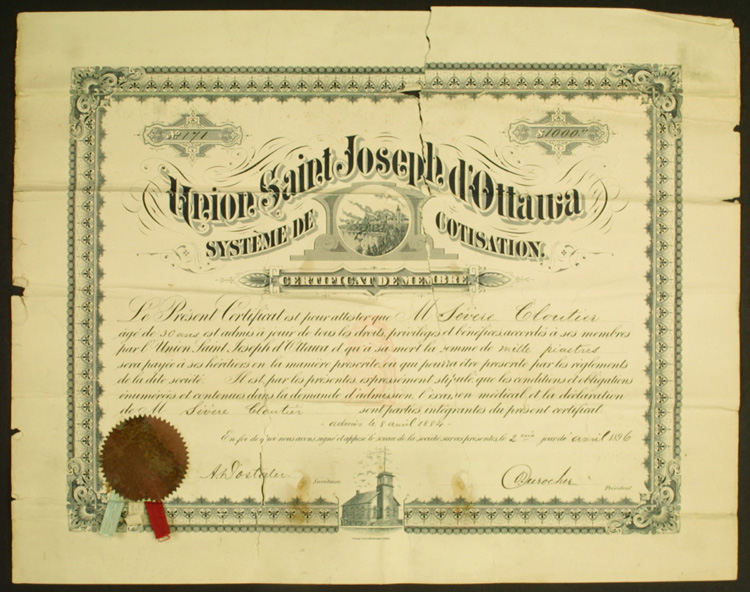 No 171
$1000.00
Union Saint Joseph d'Ottawa
SYSTÈME DE COTISATION.
CERTIFICAT DE MEMBRE
Le Présent Certificat est pour attester que M Sévère Cloutier
âgé de 30 ans est admis à jouir de tous les droits, privilèges et bénéfices accordés à ses membres
par l'Union Saint Joseph d'Ottawa et qu'à sa mort la somme de mille piastres
sera payée à ses héritiers en la manière prescrite ou qui pourra être prescrite par les règlements
de la dite société. Il est, par les présentes, expressément stipulé, que les conditions et obligations
énumérées et contenues dans la demande d'admission, l'examen médical et la déclaration
de M. Sévère Cloutier sont parties intégrantes du présent certificat
admis le 8 avril 1884
En foi de quoi nous avons signé et apposé le sceau de la société sur ces présentes le 2 me jour de avril 1896
Secrétaire
Durocher
Président